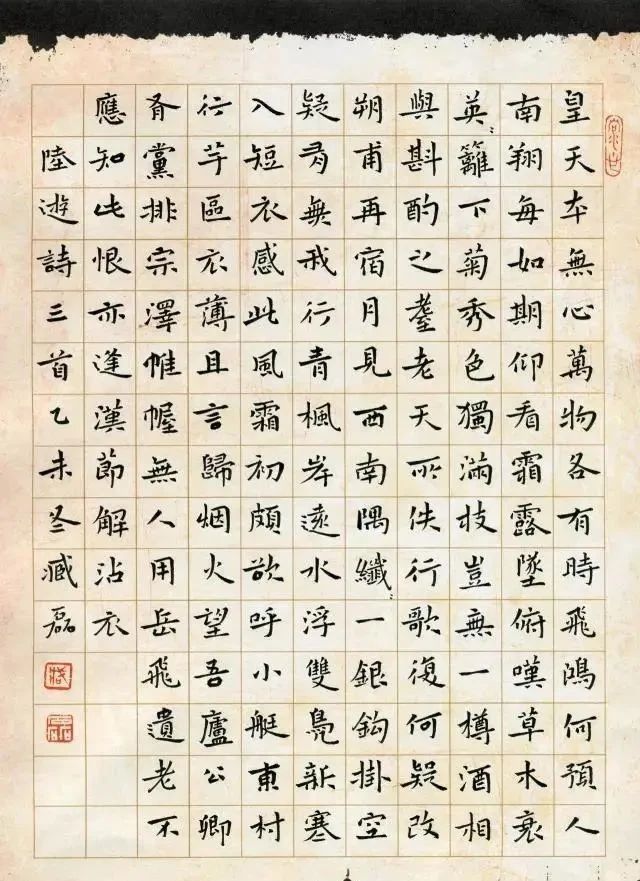 皇天本無心萬物各有時飛鴻何預人
南翔每如期仰看霜露墜俯嘆草木衰
英〻籬下菊秀色獨滿枝豈無一樽酒相
與斟酌之耋老天所佚行歌復何疑改
朔甫再宿月見西南隅纖〻一銀鉤掛空
疑有無我行青楓岸遠水浮雙鳧新寒
入短衣感此風霜初頗欲呼小艇東村
行芋區衣薄且言歸烟火望吾廬公卿
有黨排宗澤帷幄無人用岳飛遺老不
應知此恨亦逢漢節解沾衣
陸遊詩三首乙未冬臧磊